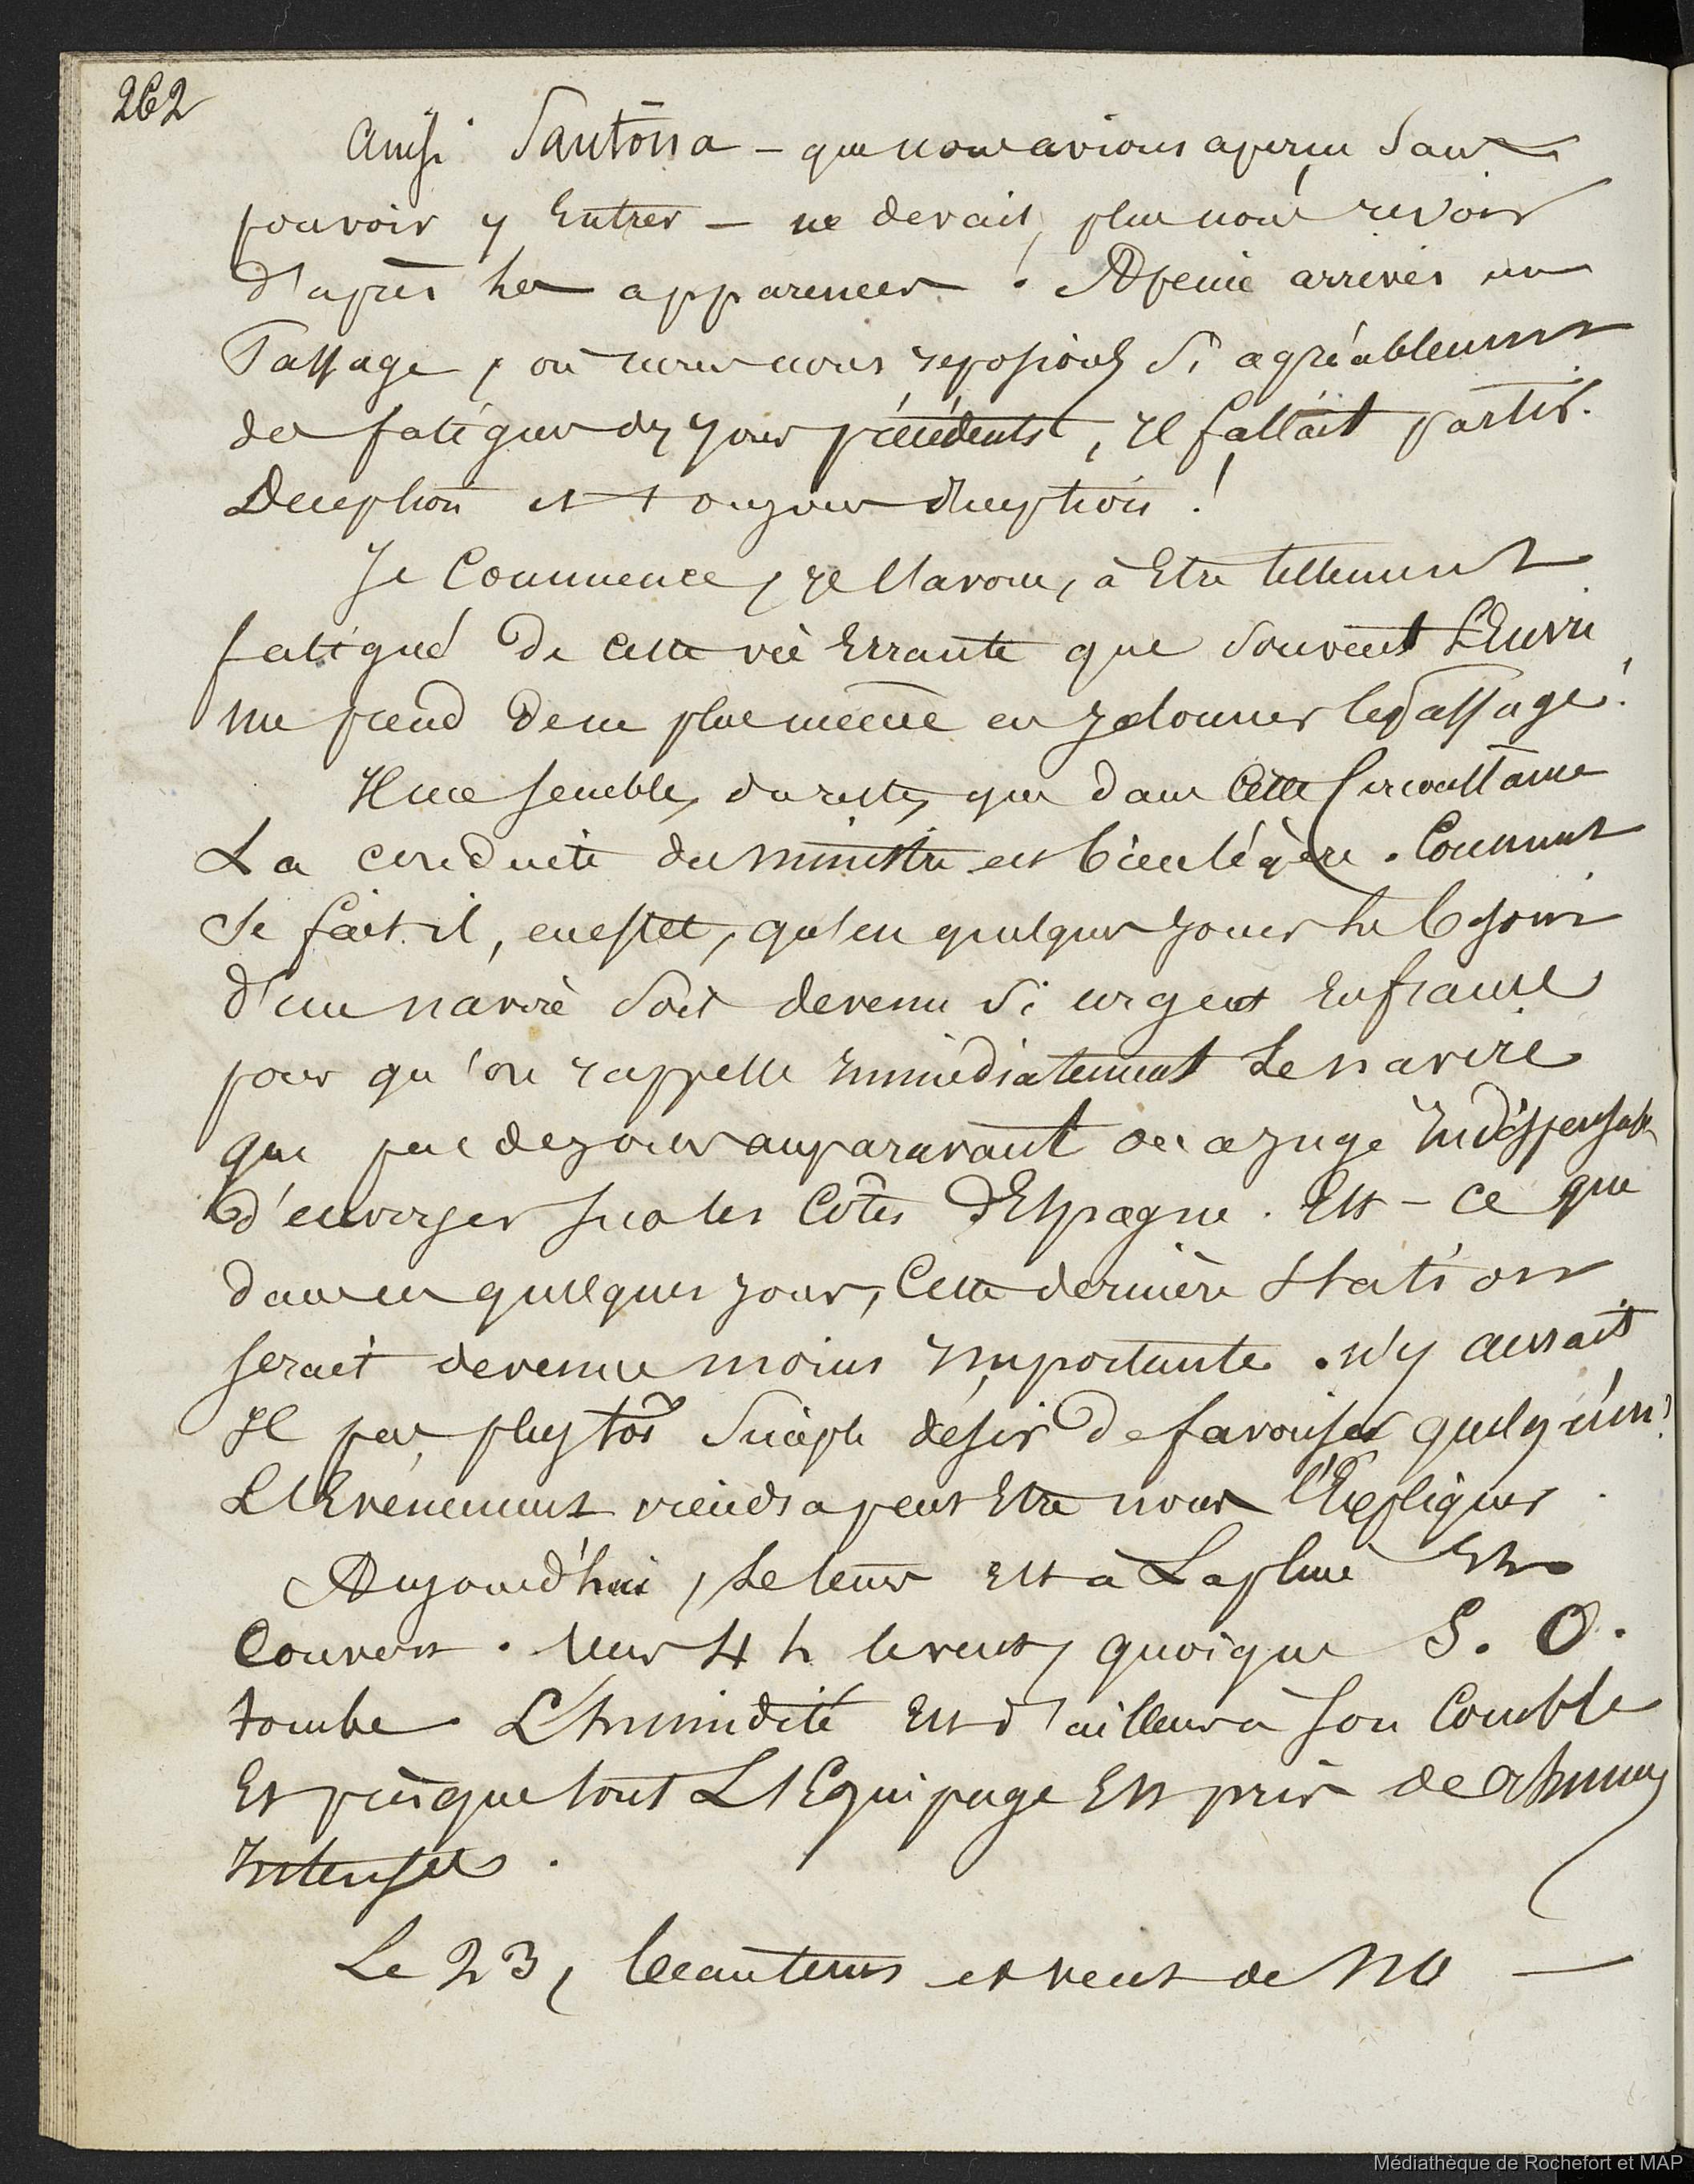 262
Ainsi Santona - que nous avions aperçu sans
pouvoir y Entrer - ne devait plus nous revoir
d'après les apparences. A peine arrivés au
Passage, où nous nous reposions si agréablement
des fatigues des jours précédents, il fallait partir.
Déception et toujours déception !
Je Commence, je l'avoue, à Etre tellement
fatigué de cette vie Errante que souvent l'Envie
me prend de ne plus même en jalonner le passage.
Il me semble, du reste, que dans Cette Circonstance
La conduite du ministre est bien légère. Comment
se fait-il, en effet, qu'en quelques jours le besoin
d'un navire soit devenu si urgent En france
pour qu'on rappelle immédiatement le navire
que peu de jours auparavant on a jugé Indispensable
d'envoyer sur les Côtes d'Espagne. Est-ce que
dans ces quelques jours, Cette dernière station
serait devenue moins importante. n'y aurait
Il pas plustôt simple désir de favoriser quelqu'un ?
L'Evénement viendra peut Etre nous l'Expliquer.
Aujourd'hui, le tems Est à La pluie Et
Couvert. Vers 4 h le vent, quoique S. O.
tombe. L'humidité Est d'ailleurs à son Comble
Et presque tout L'Equipage Est pris de rhumes
Intenses.
Le 23, beau tems et vent de NO -
Médiathèque de Rochefort et MAP